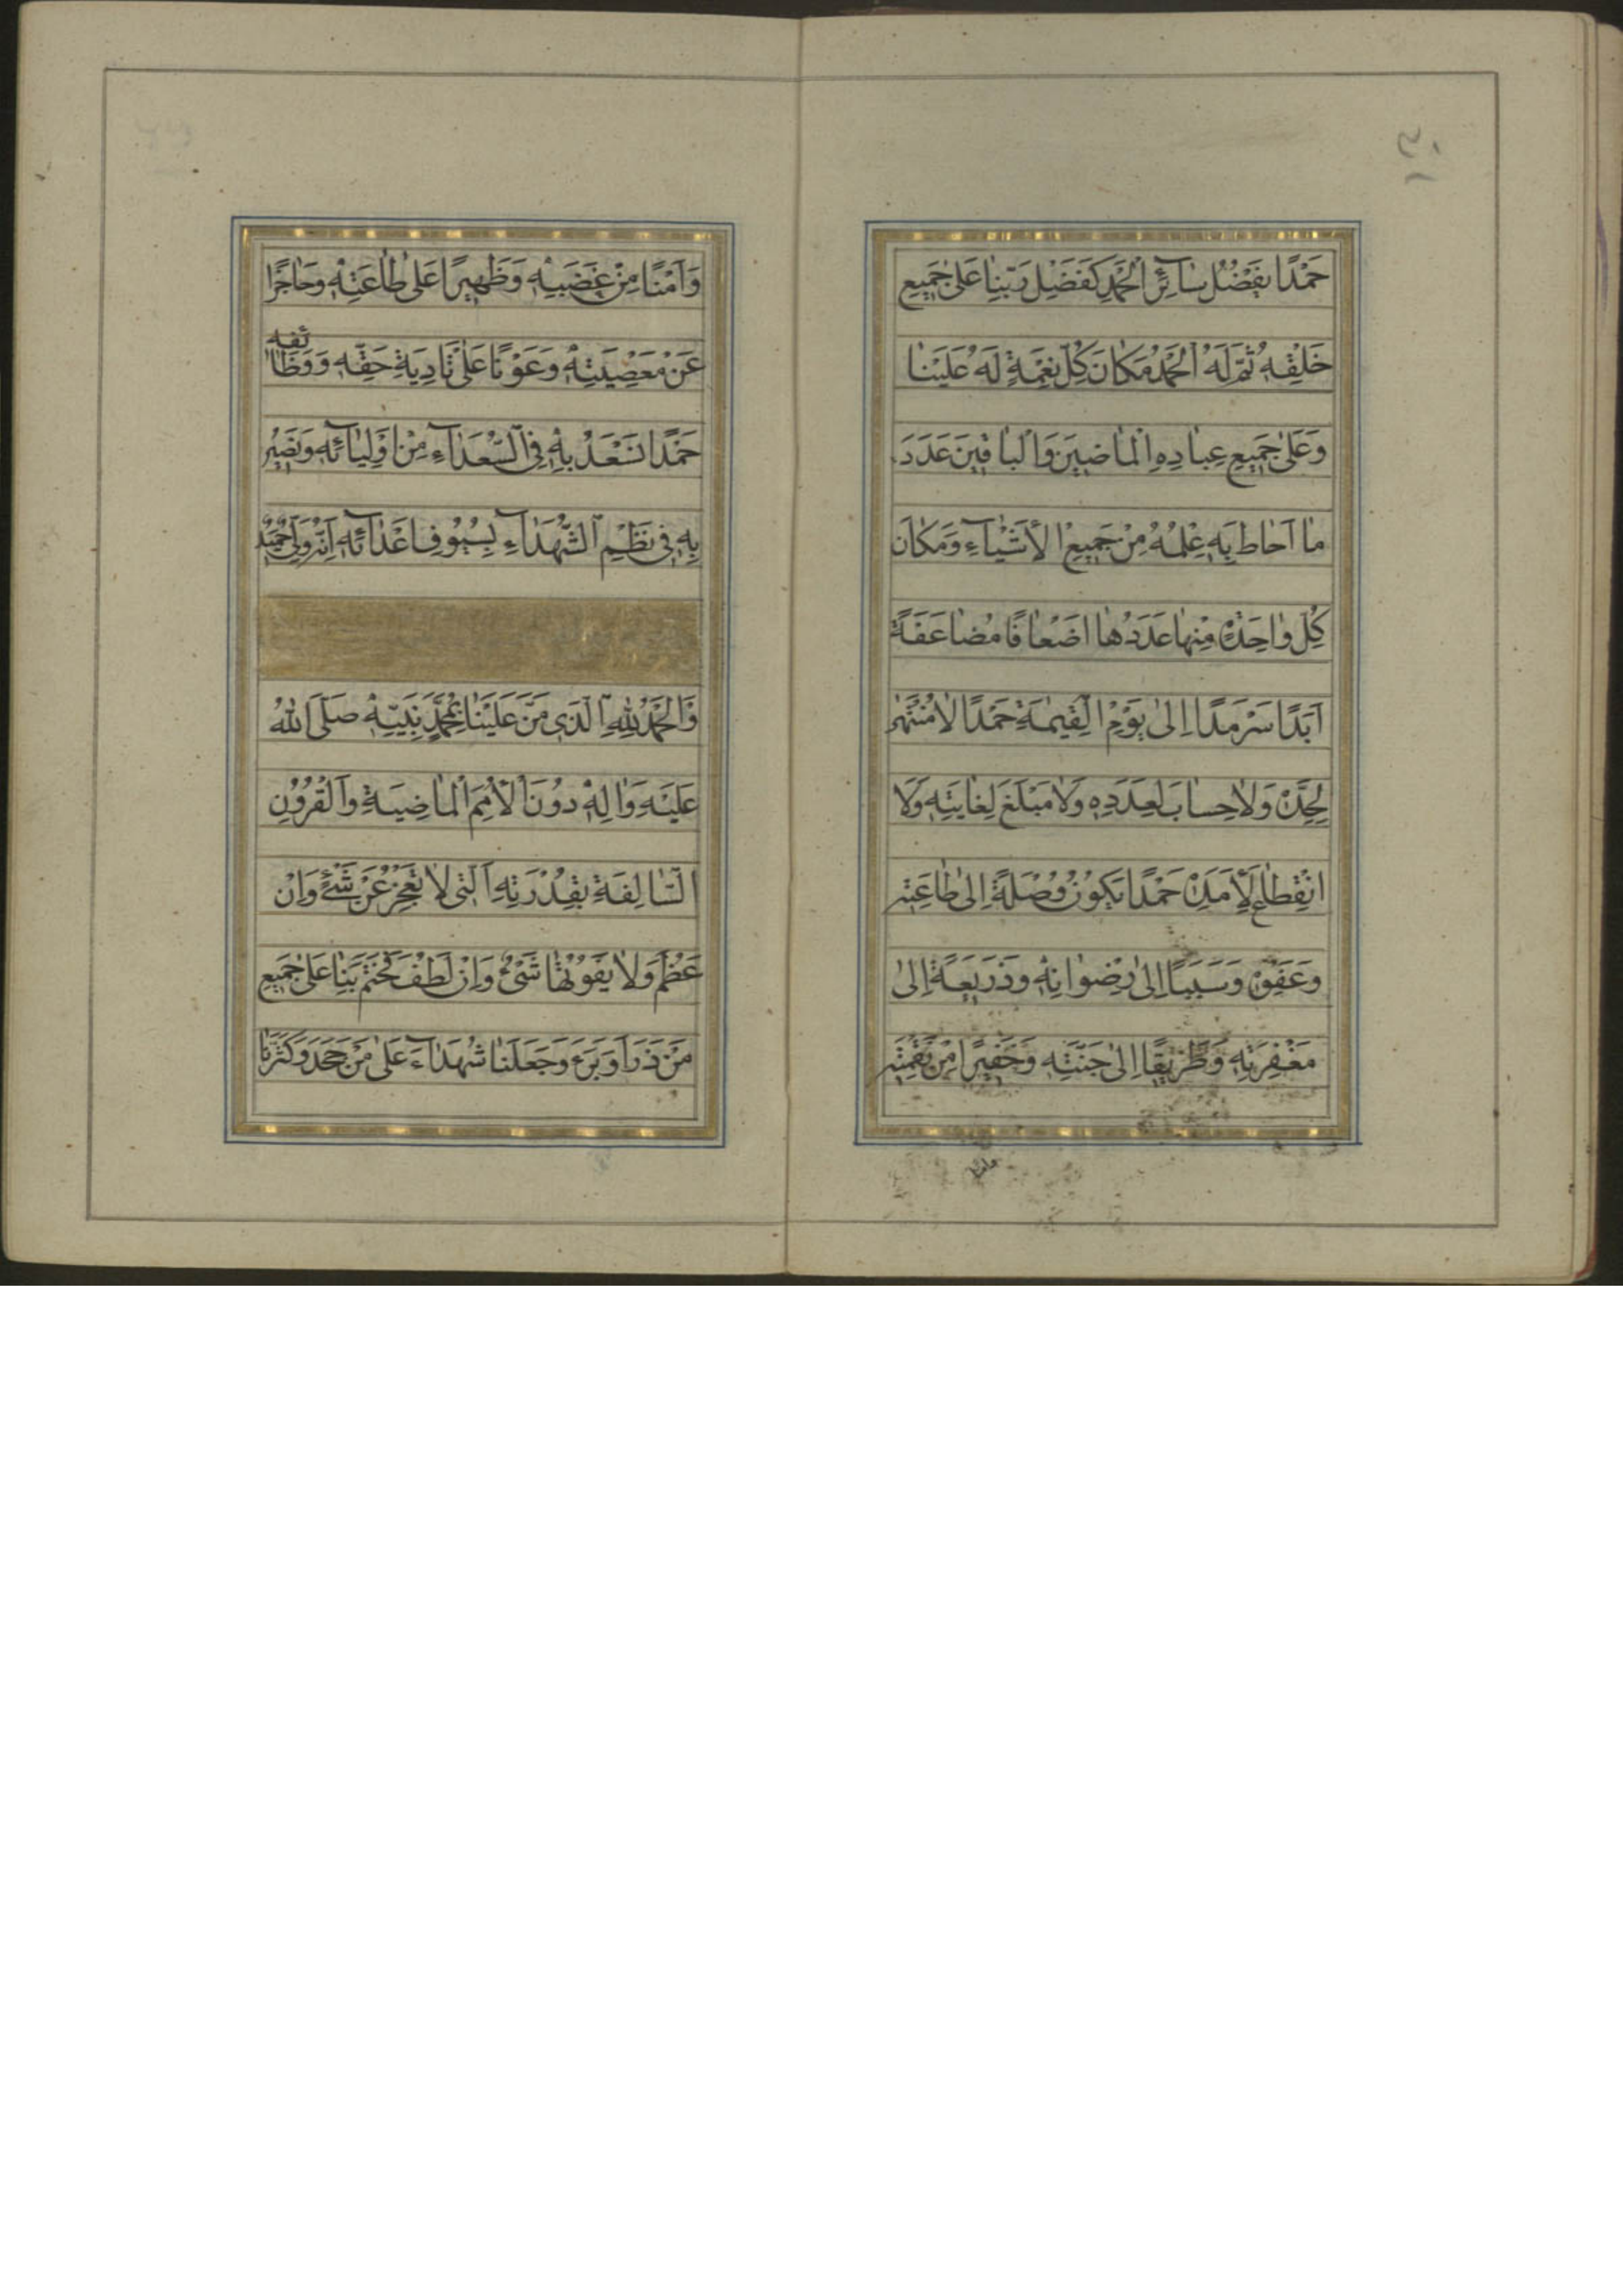 حَمْدًا يَفْضُلُ سٰآئِرَ الْحَمْدِ كَفَضْلِ رَبِّنٰا عَلىٰ جَمِيعِ
خَلْقِهِ ثُمَّ لَهُ الْحَمْدُ مَكٰانَ كُلِّ نِعْمَةٍ لَهُ عَلَيْنٰا
وَعَلىٰ جَمِيعِ عِبٰادِهِ الْمٰاضِينَ وَالْبٰاقِينَ عَدَدَ
مٰا اَحٰاطَ بِهِ عِلْمُهُ مِنْ جَمِيعِ الْاَشْيٰآءِ وَمَكٰانَ
كُلِّ وٰاحِدَةٍ مِنْهٰا عَدَدُهٰا اَضْعٰافًا مُضٰاعَفَةً
اَبَدًا سَرْمَدًا اِلىٰ يَوْمِ الْقِيٰمَةِ حَمْدًا لٰا مُنْتَهىٰ
لِحَدِّهِ وَلٰا حِسٰابَ لِعَدَدِهِ وَلٰا مَبْلَغَ لِغٰايَتِهِ وَلَا
انْقِطٰاعَ لِاَمَدِهِ حَمْدًا يَكُونُ وُصْلَةً اِلىٰ طٰاعَتِهِ
وَعَفْوِهِ وَسَبَبًا اِلىٰ رِضْوٰانِهِ وَذَرِيعَةً اِلىٰ
مَغْفِرَتِهِ وَطَرِيقًا اِلىٰ جَنَّتِهِ وَخَفِيرًا مِنْ نَقِمَتِهِ
وَاَمْنًا مِنْ غَضَبِهِ وَظَهِيرًا عَلىٰ طٰاعَتِهِ وَحٰاجِزًا
عَنْ مَعْصِيَتِهِ وَعَوْنًا عَلىٰ تٰادِيَةِ حَقِّهِ وَوَظٰائِفِهِ
حَمْدًا نَسْعَدُ بِهِ فِى السُّعَدٰآءِ مِنْ اَوْلِيٰآئِهِ وَنَصِيرُ
بِهِ فِى نَظْمِ الشُّهَدٰآءِ بِسُيُوفِ اَعْدٰآئِهِ اِنَّهُ وَلِىٌّ حَمِيدٌ
وَالْحَمْدُ لِلّٰهِ الَّذِى مَنَّ عَلَيْنٰا بِمُحَمَّدٍ نَبِيِّهِ صَلَّى اللّٰهُ
عَلَيْهِ وَاٰلِهِ دُونَ الْاُمَمِ الْمٰاضِيَةِ وَالْقُرُونِ
السّٰالِفَةِ بِقُدْرَتِهِ الَّتِى لٰا تَعْجِزُ عَنْ شَىْءٍ وَاِنْ
عَظُمَ وَلٰا يَفُوتُهٰا شَىْءٌ وَاِنْ لَطُفَ فَخَتَمَ بِنٰا عَلىٰ جَمِيعِ
مَنْ ذَرَاَ وَبَرَءَ وَجَعَلَنٰا شُهَدٰآءَ عَلىٰ مَنْ جَحَدَ وَكَثَّرَنٰا